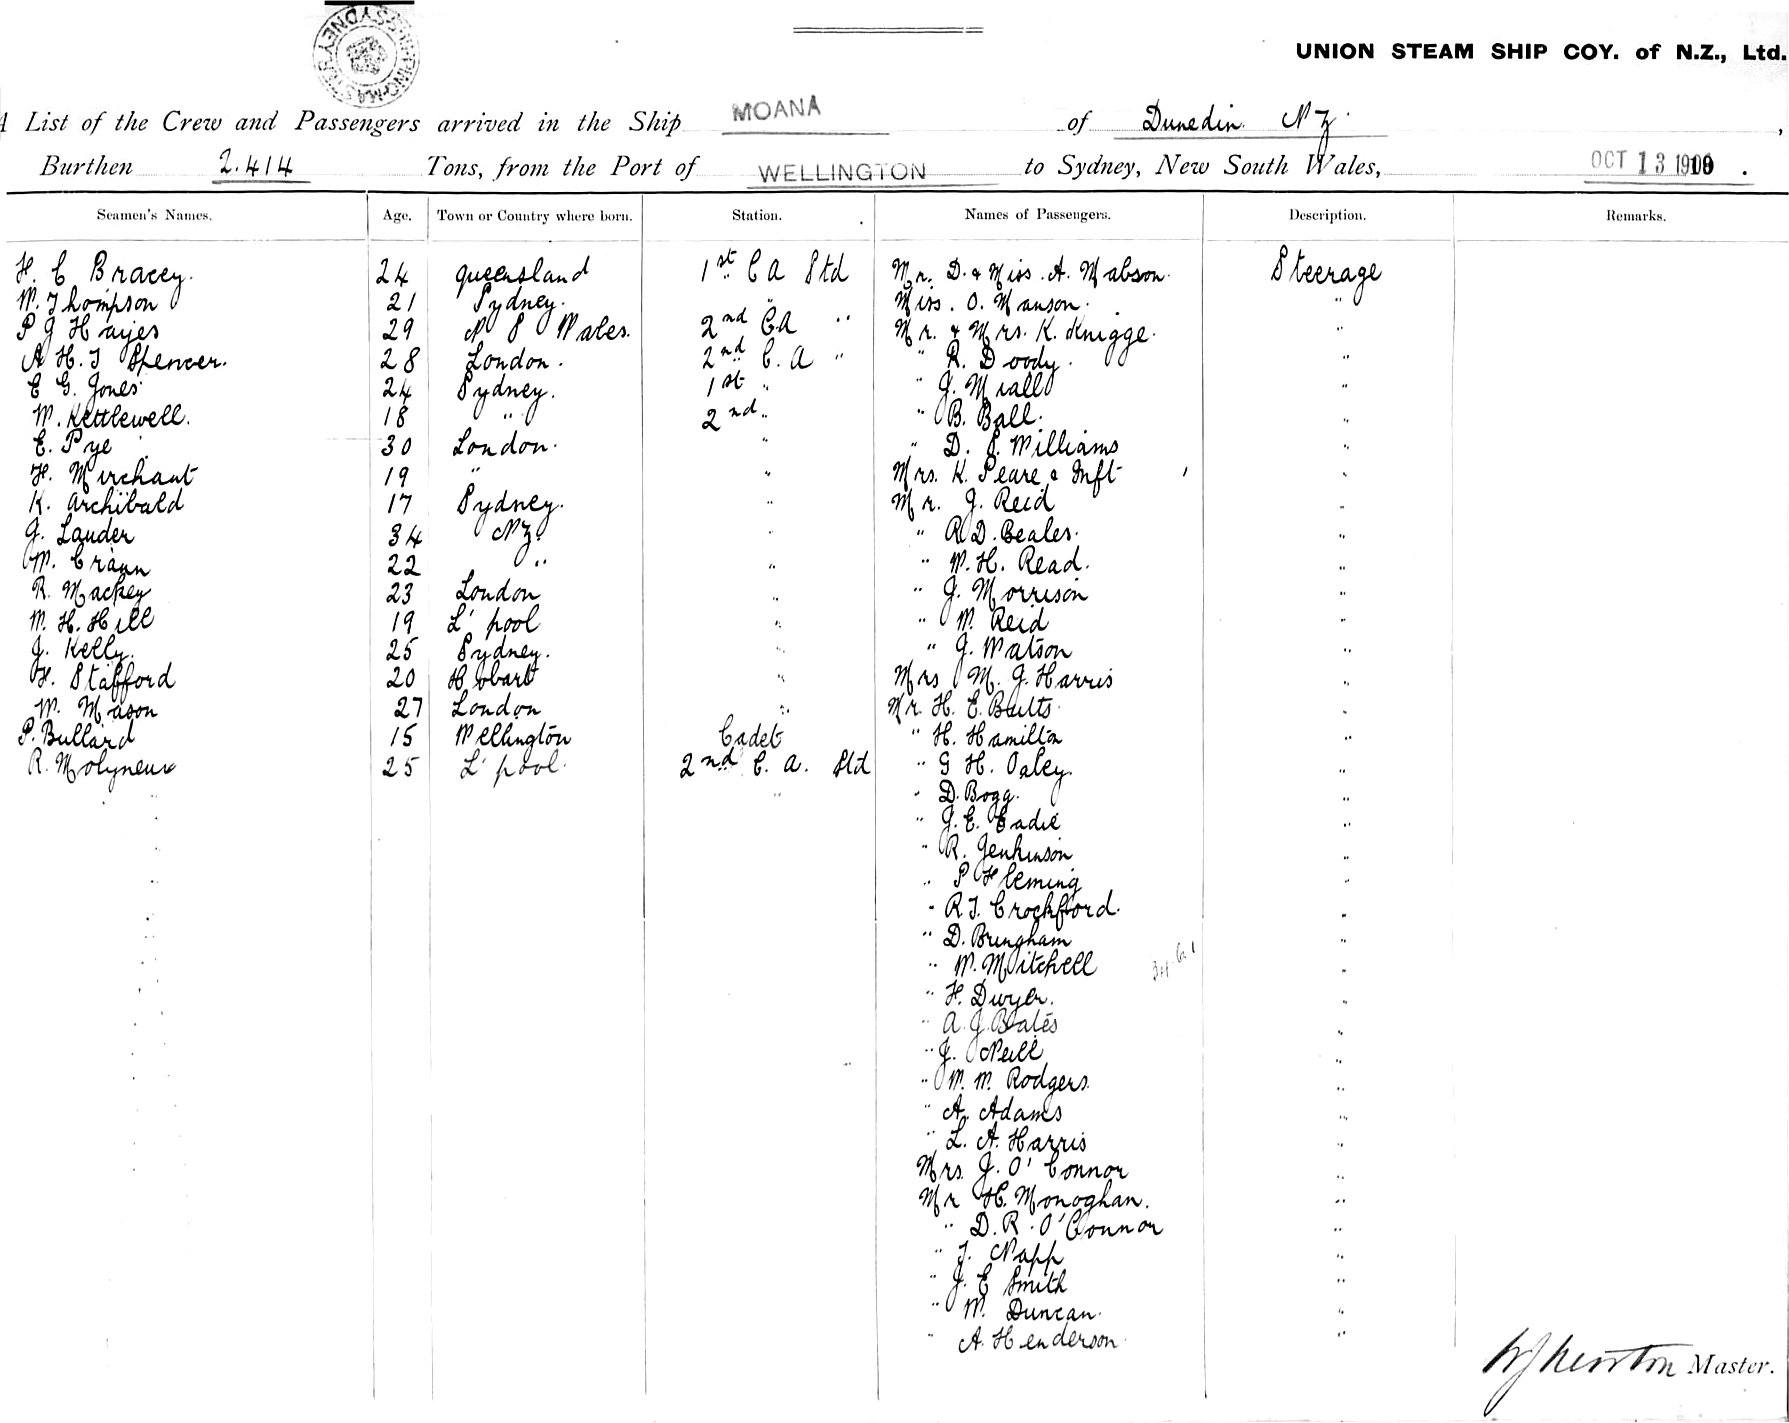 SHIPPING MASTER'S SYDNEY
UNION STEAM SHIP COY. of N.Z., Ltd.
A List of the Crew and Passengers arrived in the Ship MOANA of Dunedin NZ.,
Burthen 2.414 Tons, from the Port of WELLINGTON to Sydney, New South Wales, OCT 13 19
Seamen's Names. Age. Town or Country where born. Station. Names of Passengers. Description. Remarks.
H. C Bracey. 24 Queensland 1st C A Std Mr. D. & Miss. A. Mabson. Steerage
W. Thompson 21 Sydney. " Miss. O. Manson. "
P J Hayes 29 N S Wales. 2nd CA " Mr. & Mrs. K. Knigge. "
A H. J Spencer. 28 London. 2nd C. A " " R. Doody. "
C G. Jones 24 Sydney. 1st " " J. Miall "
W. Kettlewell. 18 " 2nd " " B. Ball. "
E. Pye 30 London. " " D. S. Williams "
H. Mirchant 19 " " Mrs. K. Peare & Inft "
K. Archibald 17 Sydney. " Mr. J. Reid "
J. Lauder 34 NZ. " " R D. Beales. "
W. Crann 22 " " " W. H. Read. "
R. Mackey 23 London " " J. Morrison "
W. H. Hill 19 L'pool " " W. Reid "
J. Kelly. 25 Sydney. " " J. Watson "
H. Stafford 20 Hobart " Mrs M. J. Harris "
W. Mason 27 London " Mr. H. E. Bults "
P. Bullard 15 Wellington Cadet " H. Hamilton "
R. Molyneux 25 L'pool. 2nd C. A. Std " G H. Oaley. "
" D. Bogg. "
" J. E. Eadie "
" R. Jenkinson "
" P Fleming "
" R J. Crockford. "
" D. Bringham "
" W. Mitchell "
" H. Dwyer. "
" A. J. Bates "
" J. Neill "
" W. W. Rodgers. "
" A. Adams "
" L. A. Harris "
Mrs. J. O'Connor "
Mr H. Monoghan. "
" D. R. O'Connor "
" J. Napp "
" J. E Smith "
" W. Duncan. "
" A. Henderson. "
Master.